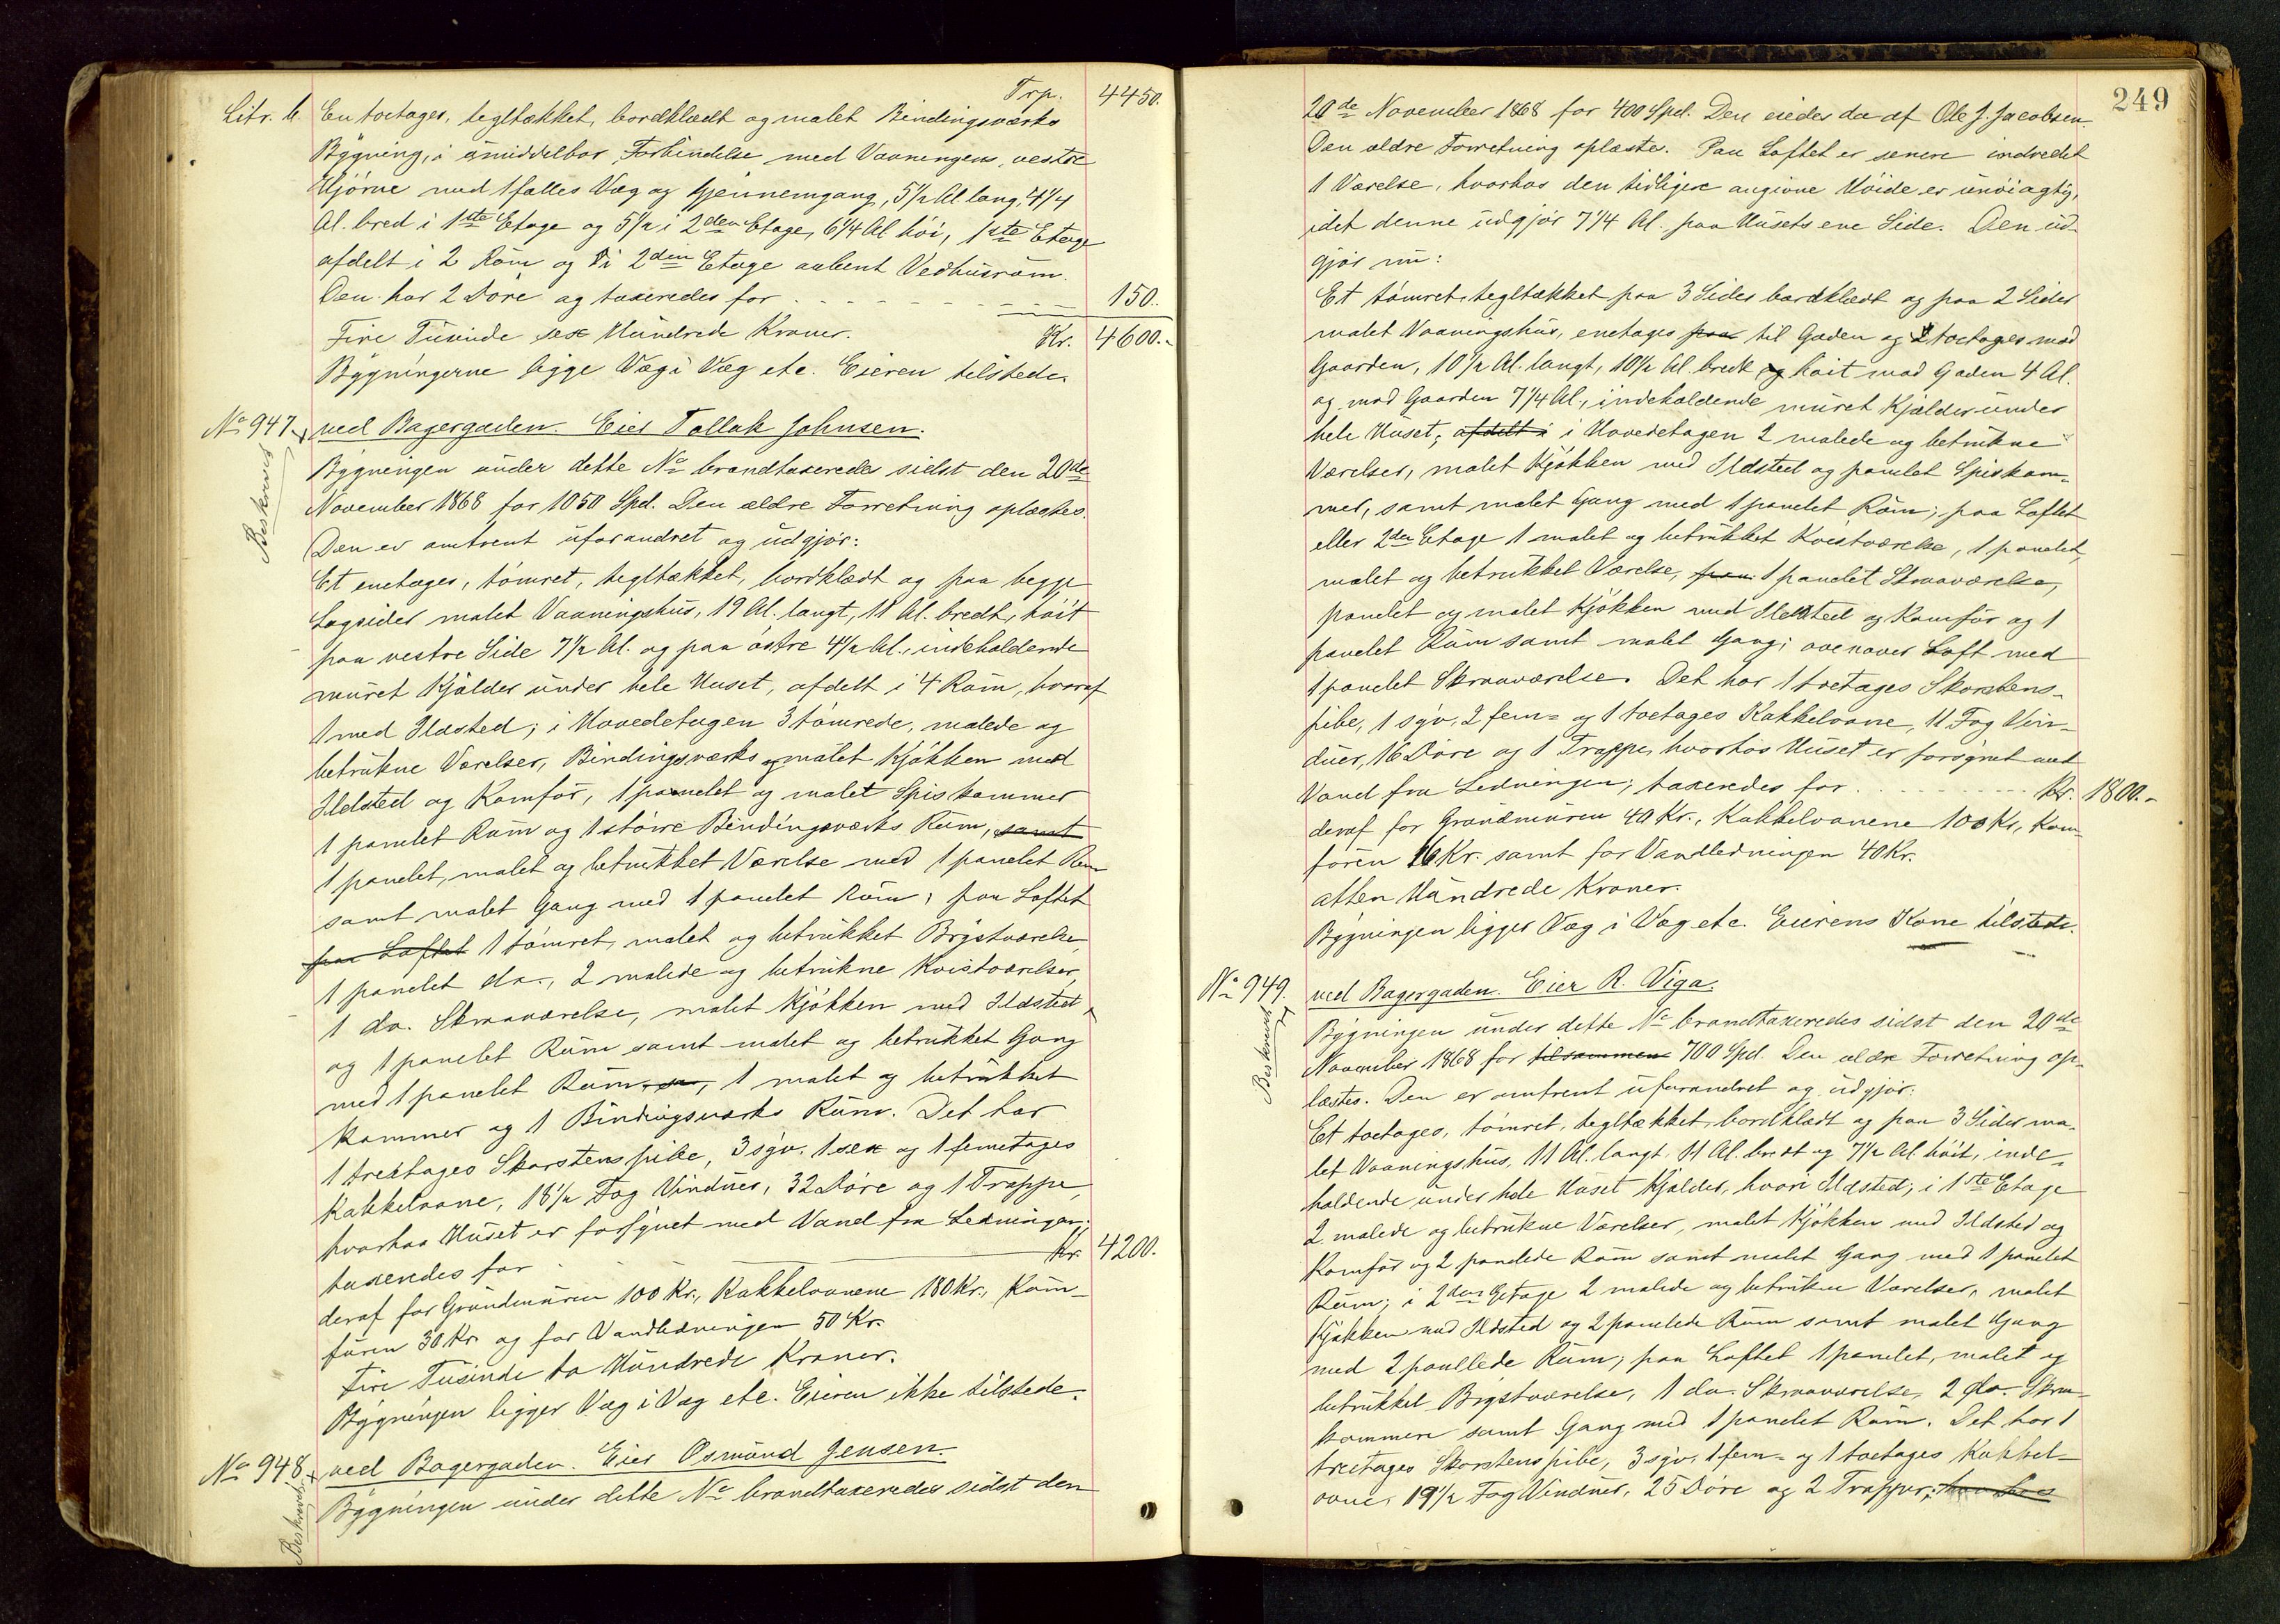 Trp. 4450.
Litr. b. En toetages, tegltækket, bordklædt og malet Bindingsværks
Bygning, i umiddelbar Forbindelse med Vaaningens vestre
Hjørne med 1 fælles Væg og Gjennemgang, 5 1/2 Al lang, 4 1/4
Al. bred i 1ste Etage og 5 1/2 i 2den Etage, 6 1/4 Al. høi, 1ste Etage
afdelt i 2 Rum og i 2den Etage aabent Vedhusrum.
Den har 2 Døre og taxeredes for 150.
Fire Tusinde sex Hundrede Kroner. Kr. 4600.-
Bygningerne ligge Væg i Væg etc. Eieren tilstede.
No 947. ved Bagergaden. Eier Tollak Johnsen.
Beskreves
Bygningen under dette No brandtaxeredes sidst den 20de
November 1868 for 1050 Spd. Den ældre Forretning oplæstes.
Den er omtrent uforandret og udgjør:
Et enetages, tømret, tegltækket, bordklædt og paa begge
Lagsider malet Vaaningshus, 19 Al. langt, 11 Al. bredt, høit
paa vestre Side 7 1/2 Al. og paa østre 4 1/2 Al., indeholdende
muret Kjælder under hele Huset, afdelt i 4 Rum, hvoraf
1 med Ildsted; i Hovedetagen 3 tømrede, malede og
betrukne Værelser, Bindingsværks og malet Kjøkken med
Ildsted og Komfør, 1 panelet og malet Spiskammer
1 panelet Rum og 1 større Bindingsværks Rum, samt
1 panelet, malet og betrukket Værelse med 1 panelet Rum
samt malet Gang med 1 panelet Rum; paa Loftet
paa Loftet 1 tømret, malet og betrukket Brystværelse,
1 panelet do., 2 malede og betrukne Kvistværelser,
1 do. Skraaværelse, malet Kjøkken med Ildsted
og 1 panelet Rum samt malet og betrukket Gang
med 1 panelet Rum, 1 malet og betrukket
Kammer og 1 Bindingsværks Rum. Det har
1 treetages Skorstenspibe, 3 syv, 1 sex og 1 femetages
Kakkelovne, 18 1/2 Fag Vinduer, 32 Døre og 1 Trappe,
hvorhos Huset er forsynet med Vand fra Ledningen;
taxeredes for Kr. 4200.
deraf for Grundmuren 100 Kr., Kakkelovnene 180 Kr., Kom-
føren 30 Kr. og for Vandledningen 50 Kr.
Fire Tusinde to Hundrede Kroner.
Bygningen ligger Væg i Væg etc. Eieren ikke tilstede.
No 948. ved Bagergaden. Eier Osmund Jensen.
Beskrevet
Bygningen under dette No brandtaxeredes sidst den
249
20de November 1868 for 400 Spd. Den eiedes da af Ole J. Jacobsen.
Den ældre Forretning oplæstes. Paa Loftet er senere indredet
1 Værelse, hvorhos den tidligere angivne Høide er unøiagtig,
idet denne udgjør 7 1/4 Al. paa Husets ene Side. Den ud-
gjør nu:
Et tømret, tegltækket paa 3 Sider bordklædt og paa 2 Sider
malet Vaaningshus, enetages paa til Gaden og toetages mod
Gaarden, 10 1/2 Al. langt, 10 1/2 Al. bredt og høit mod Gaden 4 Al.
og mod Gaarden 7 1/4 Al., indeholdende muret Kjælder under
hele Huset; afdelt i i Hovedetagen 2 malede og betrukne
Værelser, malet Kjøkken med Ildsted og panelet Spiskam-
mer, samt malet Gang med 1 panelet Rum; paa Loftet
eller 2den Etage 1 malet og betrukket Kvistværelse, 1 panelet,
malet og betrukket Værelse, 1 panelet Skraaværelse,
panelet og malet Kjøkken med Ildsted og Komfør og 1
panelet Rum samt malet Gang; ovenover Loft med
1 panelet Skraaværelse. Det har 1 toetages Skorstens-
pibe, 1 syv, 2 fem- og 1 toetages Kakkelovne, 11 Fag Vin-
duer, 16 Døre og 1 Trappe, hvorhos Huset er forsynet med
Vand fra Ledningen; taxeredes for Kr. 1800.-
deraf for Grundmuren 40 Kr., Kakkelovnene 100 Kr., Kom-
føren 16 Kr. samt for Vandledningen 40 Kr.
atten Hundrede Kroner.
Bygningen ligger Væg i Væg etc. Eierens Kone tilstede.
No 949. ved Bagergaden. Eier R. Viga.
Beskrevet
Bygningen under dette No brandtaxeredes sidst den 20de
November 1868 for tilsammen 700 Spd. Den ældre Forretning op-
læstes. Den er omtrent uforandret og udgjør:
Et toetages, tømret, tegltækket, bordklædt og paa 3 Sider ma-
let Vaaningshus, 11 Al. langt, 11 Al. bredt og 7 1/2 Al høit, inde-
holdende under hele Huset Kjælder, hvori Ildsted; i 1ste Etage
2 malede og betrukne Værelser, malet Kjøkken med Ildsted og
Komfør og 2 panelede Rum samt malet Gang med 1 panelet
Rum; i 2den Etage 2 malede og betrukne Værelser, malet
Kjøkken med Ildsted og 2 panelede Rum samt malet Gang
med 2 panelede Rum; paa Loftet 1 panelet, malet og
betrukket Brystværelse, 1 do. Skraaværelse, 2 do. Skra-
kammere samt Gang med 1 panelet Rum. Det har 1
treetages Skorstenspibe, 3 syv, 1 fem- og 1 toetages Kakkel-
ovne, 19 1/2 Fag Vinduer, 25 Døre og 2 Trapper;